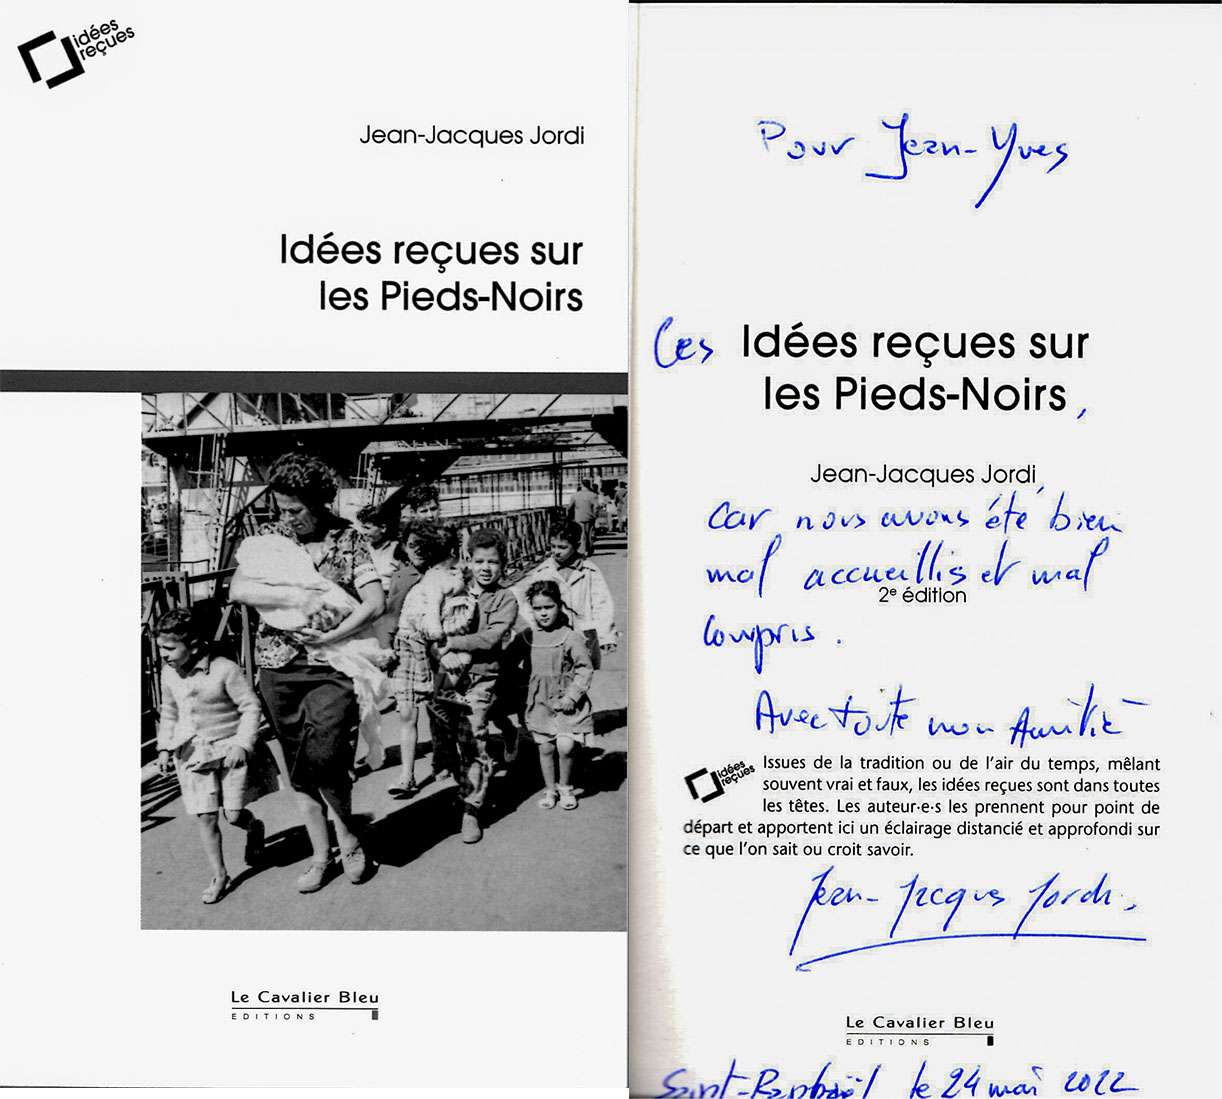 idées
reçues
Jean-Jacques Jordi
Idées reçues sur
les Pieds-Noirs
Le Cavalier Bleu
EDITIONS
Pour Jean-Yves
Ces Idées reçues sur
les Pieds-Noirs,
Jean-Jacques Jordi,
car nous avons été bien
mal accueillis et mal
2e édition
compris.
Avec toute mon Amitié
idées
reçues
Issues de la tradition ou de l'air du temps, mêlant
souvent vrai et faux, les idées reçues sont dans toutes
les têtes. Les auteur·e·s les prennent pour point de
départ et apportent ici un éclairage distancié et approfondi sur
ce que l'on sait ou croit savoir.
Jean-Jacques Jordi.
Le Cavalier Bleu
EDITIONS
Saint-Raphaël le 24 mai 2022